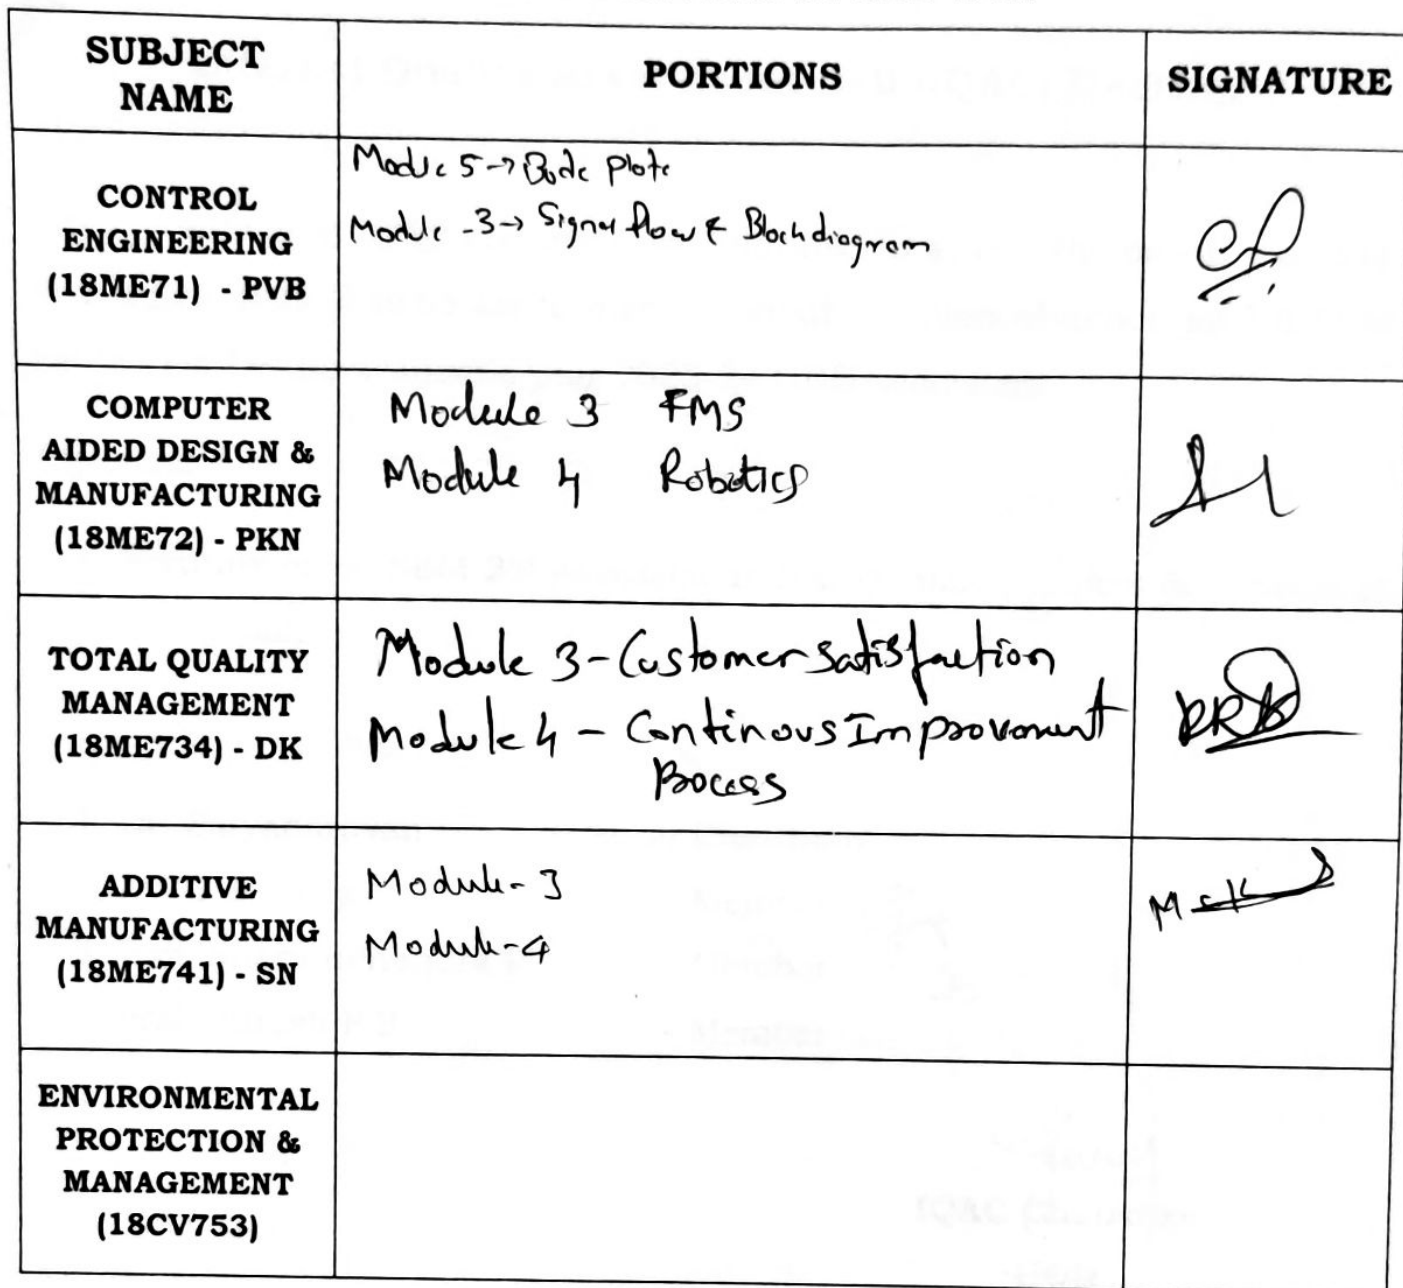 SUBJECT
NAME
PORTIONS
SIGNATURE
CONTROL
ENGINEERING
(18ME71) - PVB
Module 5 → Bode plots
Module -3 → Signal flow & Block diagram
COMPUTER
AIDED DESIGN &
MANUFACTURING
(18ME72) - PKN
Module 3 FMS
Module 4 Robotics
TOTAL QUALITY
MANAGEMENT
(18ME734) - DK
Module 3 - Customer Satisfaction
Module 4 - Continous Improvement
Process
ADDITIVE
MANUFACTURING
(18ME741) - SN
Module - 3
Module - 4
ENVIRONMENTAL
PROTECTION &
MANAGEMENT
(18CV753)